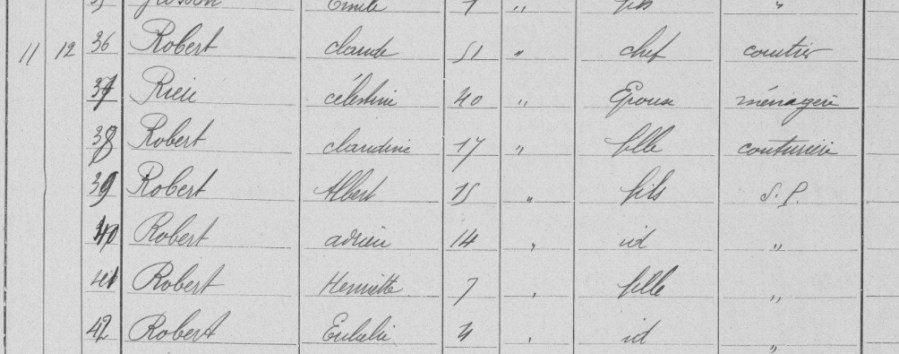 Emile 7 " fils "
11 12 36 Robert claude 51 " chef courtier
37 Rieu célestine 40 " Epouse ménagère
38 Robert claudine 17 " fille couturière
39 Robert Albert 15 " fils S. P.
40 Robert adrien 14 " id "
41 Robert Henriette 7 " fille "
42 Robert Eulalie 4 " id "